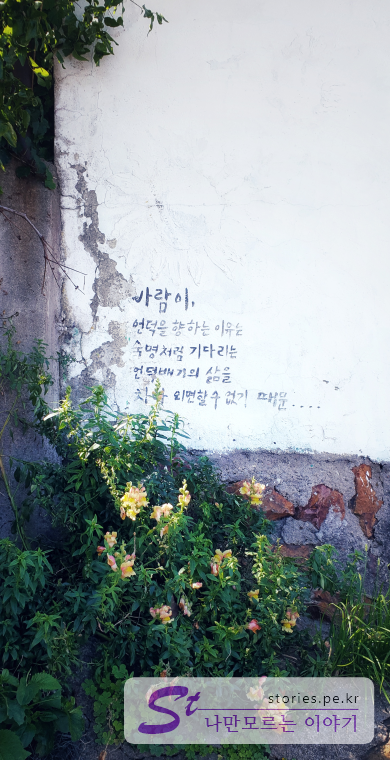 바람이,
언덕을 향하는 이유는
숙명처럼 기다리는
언덕배기의 삶을
차마 외면할 수 없기 때문....
St
stories.pe.kr
나만모르는 이야기